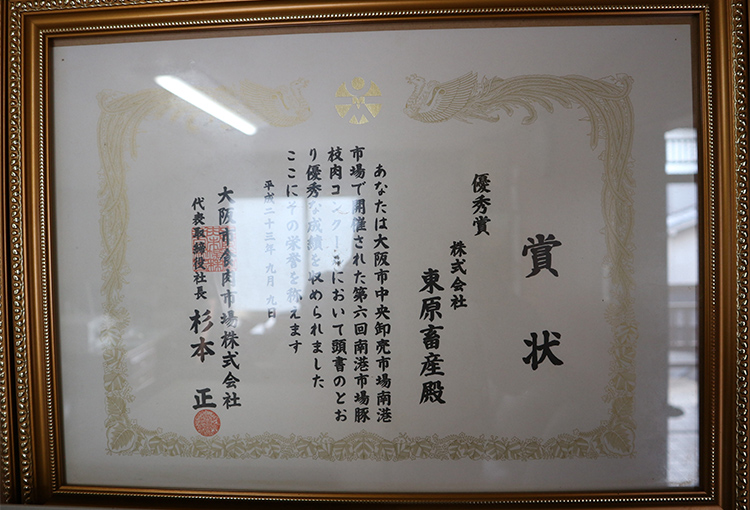 賞状
優秀賞
株式会社
東原畜産殿
あなたは大阪市中央卸売市場南港
市場で開催された第六回南港市場豚
枝肉コンクールにおいて頭書のとお
り優秀な成績を収められました
ここにその栄誉を称えます
平成二十三年九月九日
大阪市食肉市場株式会社
代表取締役社長 杉本 正